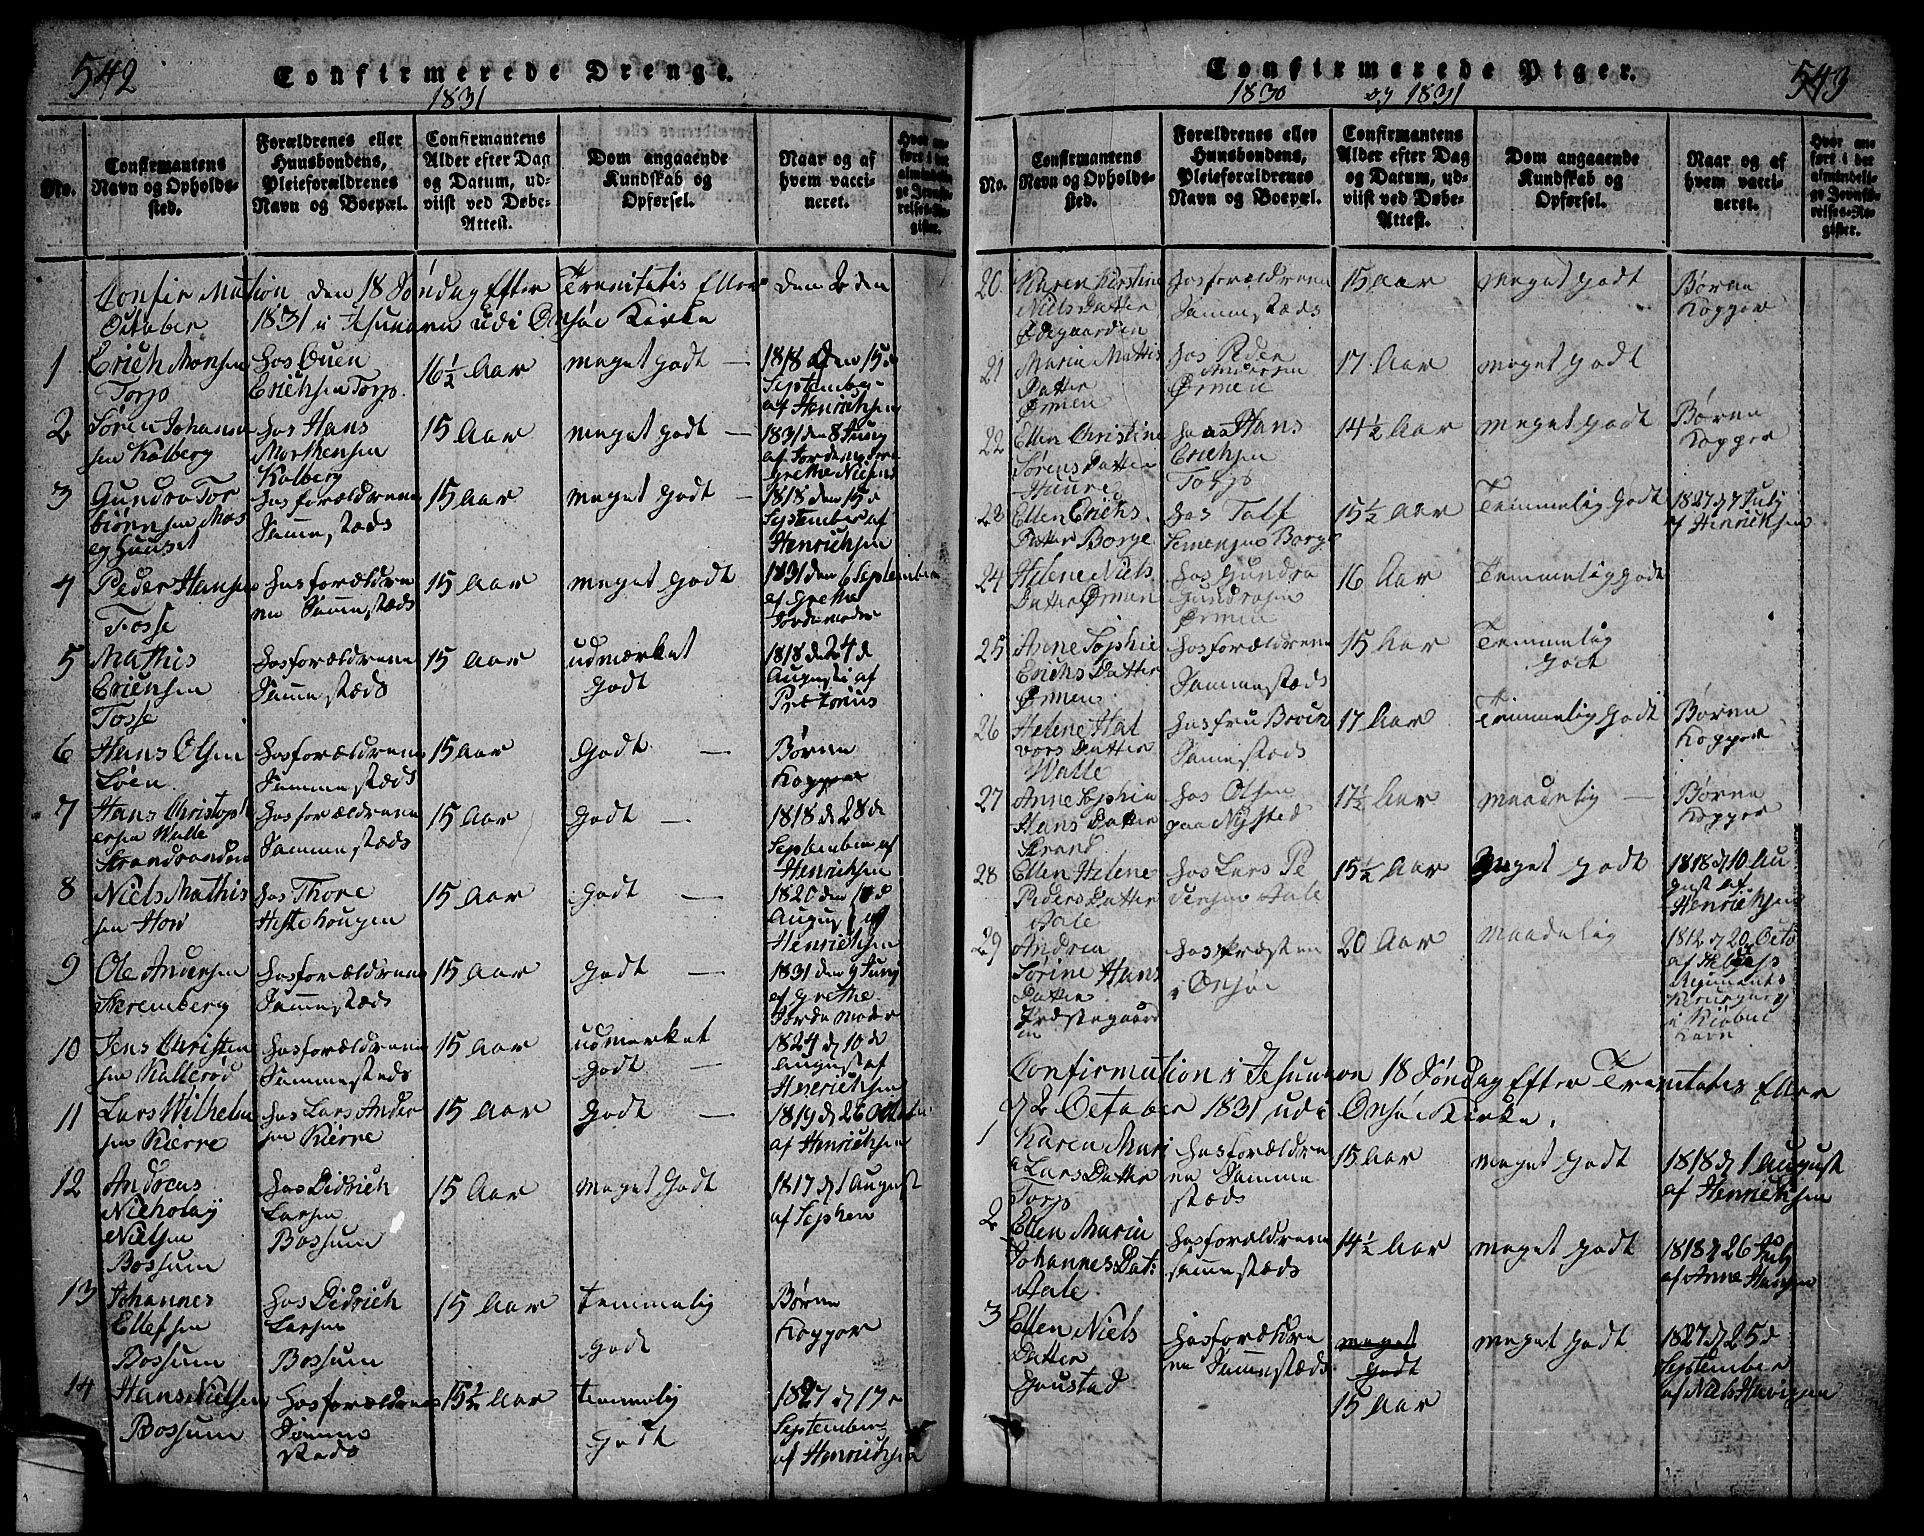 542
Confirmerede Drenge.
1831
No.
Confirmantens Navn og Opholds-sted.
Forældrenes eller Huusbondens, Pleieforældrenes Navn og Boepæl.
Confirmantens Alder efter Dag og Datum, ud-viist ved Døbe-Attest.
Dom angaaende Kundskab og Opførsel.
Naar og af hvem vacci-neret.
Hvor an-ført i det almindeli-ge Jevnfø-relses-Re-gister.
Confirmation den 18 Søndag Efter Trenitatis Eller den 2 den
October 1831 i udi Onsøe Kirke
1
Erich Monsen
Torp
hos Ouen
Erichsen Torp
16½ Aar
meget godt —
1818 den 15 d
September
af Henrichsen
2
Søren Johann
sen Kolberg
hos Hans
Morthensen
Kolberg
15 Aar
meget godt —
1831 den 8 Juny
af Jordemoder
Grethe Niels
3
Gundro Tor
biørnsen Mos
eghuuset
hos forældrene
Sammestæds
15 Aar
meget godt —
1818 den 15 d
September af
Henrichsen
4
Peder Hansen
Fosse
hos forældre
ne Sammestæds
15 Aar
meget godt
1831 den 6 September
af Grethe
Jordemoder
5
Mathis
Ericksen
Tosse
hos forældrene
Sammestæds
15 Aar
udmærket
godt
1818 den 24 d
Augusti af
Prætorius
6
Hans Olsen
Løen
hos forældrene
Sammestæds
15 Aar
Godt —
Børne
Kopper
7
Hans Christoph
ersen Walle
Strandranden
hos forældrene
Sammestæds
15 Aar
Godt —
1818 d 28 d
September af
Henrichsen
8
Niels Mathis
sen How
hos Thore
Hestehougen
15 Aar
godt —
1820 den 10 d
August af
Henrichsen
9
Ole Andersen
Steremberg
hos forældrene
Sammestæds
15 Aar
godt —
1831 den 9 Juny
af Grethe
Jordemoder
10
Jens Christen
sen Kallerød
hos forældrene
Sammestæds
15 Aar
udmerket
godt —
1824 d 10 d
August af
Henrichsen
11
Lars Wilhelm
sen Kierre
hos Lars Ander
sen Kierre
15 Aar
godt —
1819 d 26 October
af Henrichsen
12
Andreas
Nicholay
Nielsen
Bossum
hos Didrich
Larsen
Bossum
15 Aar
meget godt
1817 d 1 August
af Sephen
13
Johannes
Ellefsen
Bossum
hos Didrich
Larsen
Bossum
15 Aar
temmelig
godt
Børne
Kopper
14
Hans Nielsen
Bossum
hos forældrene
Samme
stæds
15½ Aar
temmelig
godt
1827 d 17 d
September
af Henrichsen
543
Confirmerede Piger.
1830 og 1831
No.
Confirmantens Navn og Opholds-sted.
Forældrenes eller Huusbondens, Pleieforældrenes Navn og Boepæl.
Confirmantens Alder efter Dag og Datum, ud-viist ved Døbe-Attest.
Dom angaaende Kundskab og Opførsel.
Naar og af hvem vacci-neret.
Hvor an-ført i det almindeli-ge Jevnfø-relses-Re-gister.
20
Karen Kirstine
Niels Datter
Ødegaarden
hos forældrene
Sammestæds
15 Aar
meget godt
Børne
Kopper
21
Marin Mattis
Datter
Ørmen
hos Peder
Andersen
Ørmen
17 Aar
meget godt
22
Ellen Christine
Sørens Datter
Huure
hos Hans
Erichsen
Torp
14½ Aar
meget godt
Børne
Kopper
23
Ellen Erichs
Datter Borge
hos Tolf
Borge
15½ Aar
Temmelig godt
1827 d 7 July
af Henrichsen
24
Helene Niels
Datter Ørmen
hos Gundro
Gundrosen
Ørmen
16 Aar
Temmelig godt
25
Anne Sophie
Erichs Datter
Ørmen
hos forældrene
Sammestæds
15 Aar
Temmelig
godt
26
Helene Hal
vors Datter
Walle
hos fru Brun
Sammestæds
17 Aar
Temmelig godt
Børne
Kopper
27
Anne Sophie
Hans Datter
Strand
hos Olsen
paa Nysted
17½ Aar
maadelig —
Børne
Kopper
28
Ellen Helene
Peders Datter
Aale
hos Lars Pe
dersen Aale
15½ Aar
Meget godt
1818 d 10 Au
gust af
Henrichsen
29
Andrea
Sørine Hans
Datter
Prestegaard
en
hos Præsten
i Onsøe
20 Aar
maadelig
1812 d 20 Octo
af
Regiments
Kirurgus
i Kiøben
havn
Confirmation i 18 Søndag Efter Trenitatis Eller
d 2 October 1831 udi Onsøe Kirke.
1
Karen Mari
a Lars Datter
Torp
hos forældre
ne Samme
stæds
15 Aar
meget godt
1818 d 1 August
af Henrichsen
2
Ellen Maria
Johannes Dat:
Aale.
hos forældrene
sammestæds
14½ Aar
meget godt
1818 d 26 July
af Anne Hansen
3
Ellen Niels
Datter
Gaustad
hos forældre
ne Sammestæds
meget
Godt
15 Aar
meget godt
1827 d 25 d
September
af Niels